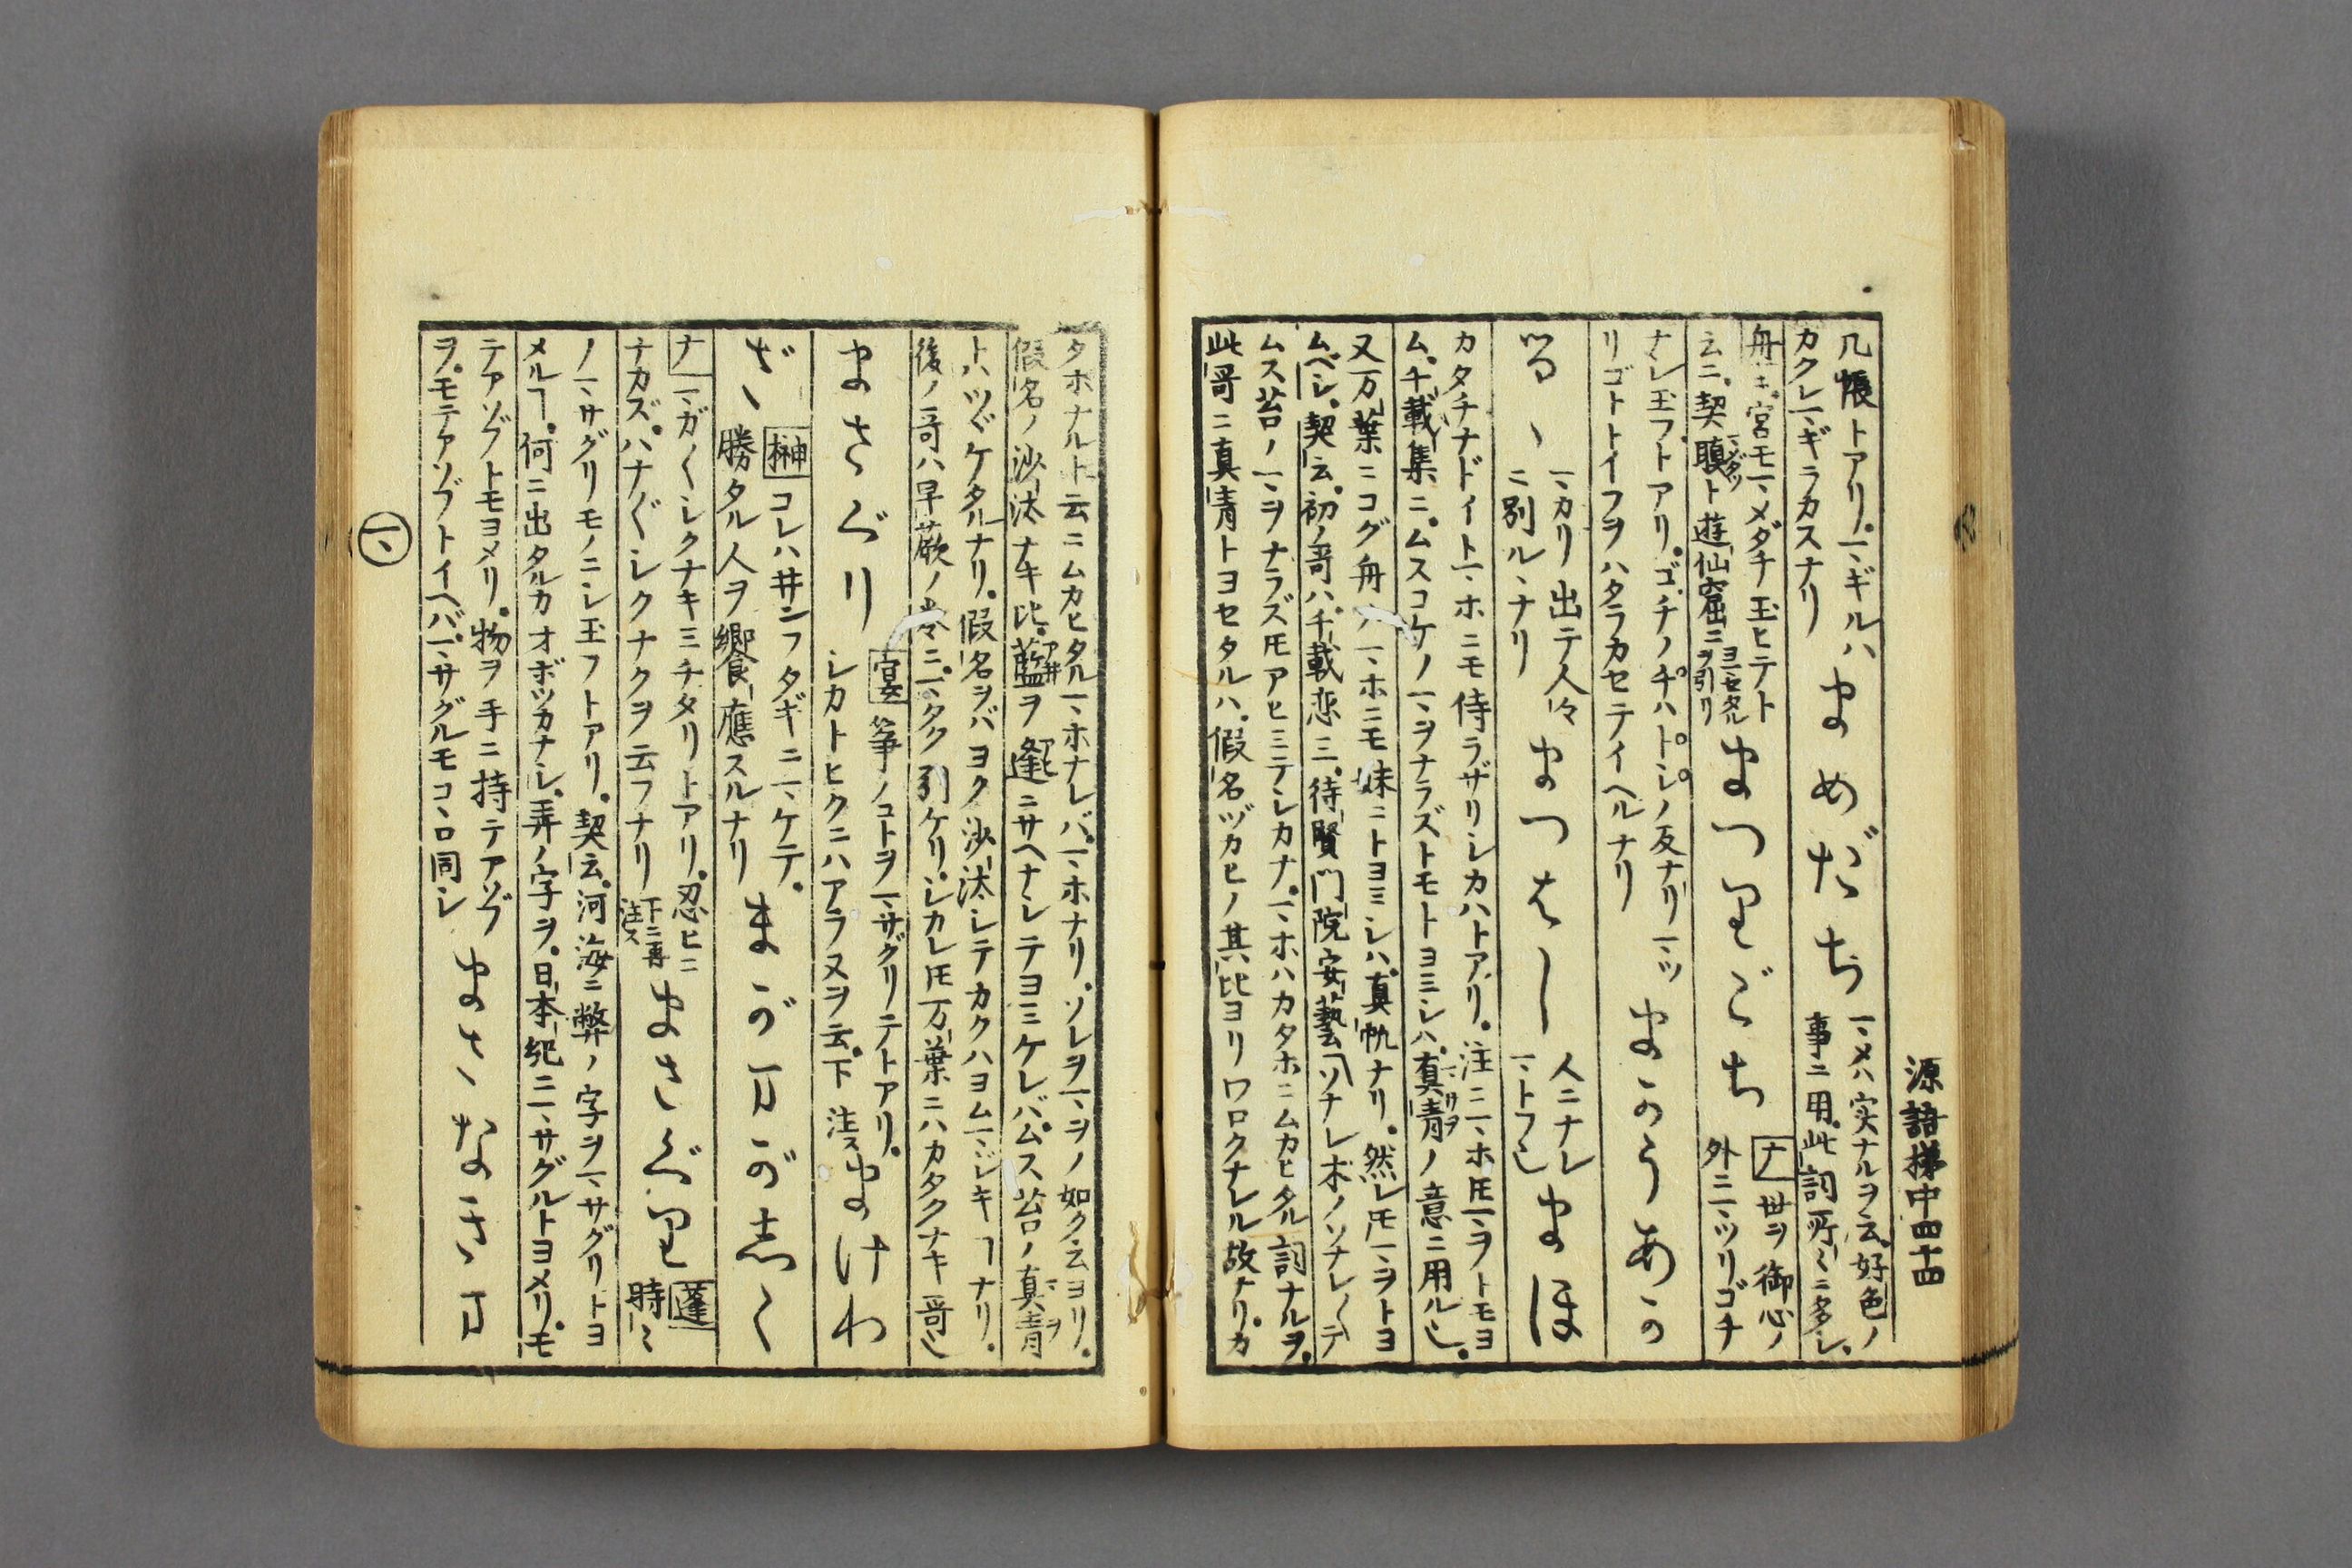 源語梯中四十四
几帳トアリ。マギルハ
カクレマギラカスナリ
まめだち
マメハ実ナルヲ云。好色ノ
事ニ用。此詞所〻ニ多シ。
舟ニ。宮モマメダチ玉ヒテト
云ニ。契
ト遊仙窟ニ
ヨマセタル
ヲ引リ
まつりごち
ナ
世ヲ御心ノ
外ニマツリゴチ
ナシ玉フトアリ。ゴチノチハトシノ反ナリマツ
リゴトトイフヲハタラカセテイヘルナリ
まかうあか
るゝ
マカリ出テ人々
ニ別ルヽナリ
まつはし
人ニナレ
マトフ也
まほ
カタチナドイトマホニモ侍ラザリシカハトアリ。注ニマホ𪜈マヲトモヨ
ム。千載集ニ。ムスコケノマヲナラズトモトヨミシハ。真青ノ意ニ用ル也。
マサヲ
又万葉ニコグ舟ノマホニモ妹ニトヨミシハ。真帆ナリ。然レ𪜈マヲトヨ
ムベシ。契云。初ノ哥ハ千載恋三。待賢門院安藝ソナレ木ノソナレ〳〵テ
ムス苔ノマヲナラズ𪜈アヒミテシカナ。マホハカタホニムカヒタル詞ナルヲ。
此哥ニ真青トヨセタルハ。假名ヅカヒノ其比ヨリワロクナレル故ナリ。カ
タホナルト云ニムカヒタルマホナレバ。マホナリ。ソレヲマヲノ如ク云ヨリ。
假名ノ沙汰ナキ比。藍ヲ逢ニサヘナシテヨミケレバ。ムス苔ノ真青
アヰ
アヒ
マヲ
トハツヾケタルナリ。假名ヲバヨク沙汰シテカクハヨムマジキヿナリ。
後ノ哥ハ早蕨ノ巻ニ。マタク引ケリ。シカレ𪜈万葉ニハカタクナキ哥也
まさぐり
宴
筝ノコトヲマサグリノテトアリ。
シカトヒクニハアラヌヲ云。下注ス
まけわ
ざ
榊
コレハ井ンフタギニマケテ。
勝タル人ヲ饗應スルナリ
まがまがし〳〵
ナ
マガ〳〵シクナキミチタリトアリ。忍ヒニ
ナカズ。ハナ〴〵シクナクヲ云フナリ
下ニ再
注ス
まさぐり
蓬
時〻
ノマサグリモノニシ玉フトアリ。契云。河海ニ弊ノ字ヲマサグリトヨ
メルヿ。何ニ出タルカオボツカナシ。弄ノ字ヲ。日本紀ニマサグルトヨメリ。モ
テアソブトモヨメリ。物ヲ手ニ持テアソブ
ヲ。モテアソブトイヘバ。マサグルモコヽロ同シ
まさなきま
マ